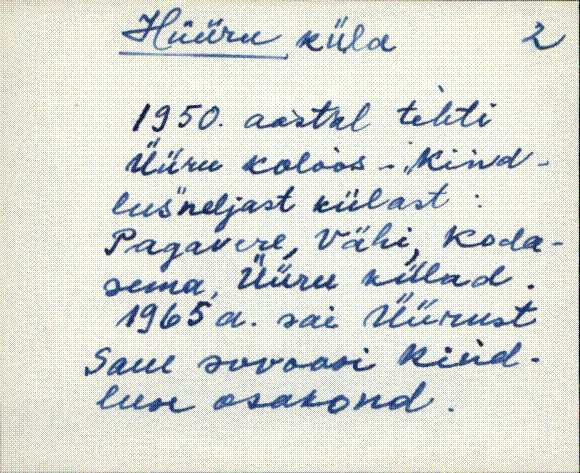 Hüüru küla 2
1950. aastal tehti
Üüru koloos - "Kind-
lus" neljast külast :
Pagavere, Vähi, Koda-
sema, Üüru külad.
1965 a. sai Üürust
Saue sovoosi Kind-
luse osakond.